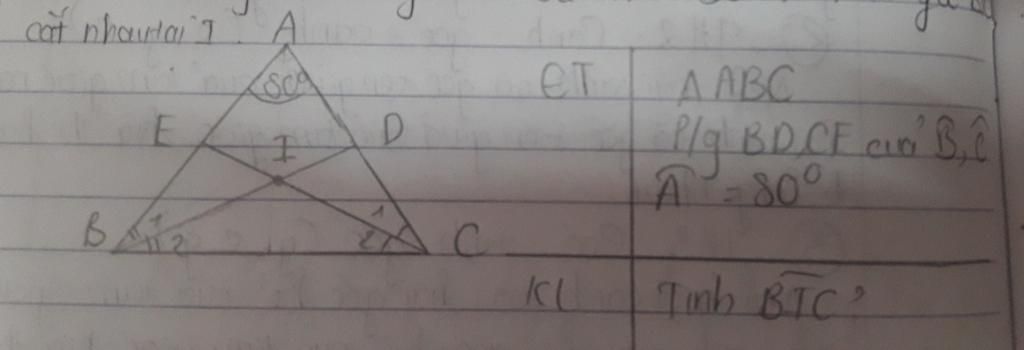 cắt nhau tại I.
A
80°
E
D
I
B
1
2
1
2
C
GT
Δ ABC
P/g BD, CE của B̂, Ĉ
Â = 80°
KL
Tính BIC?